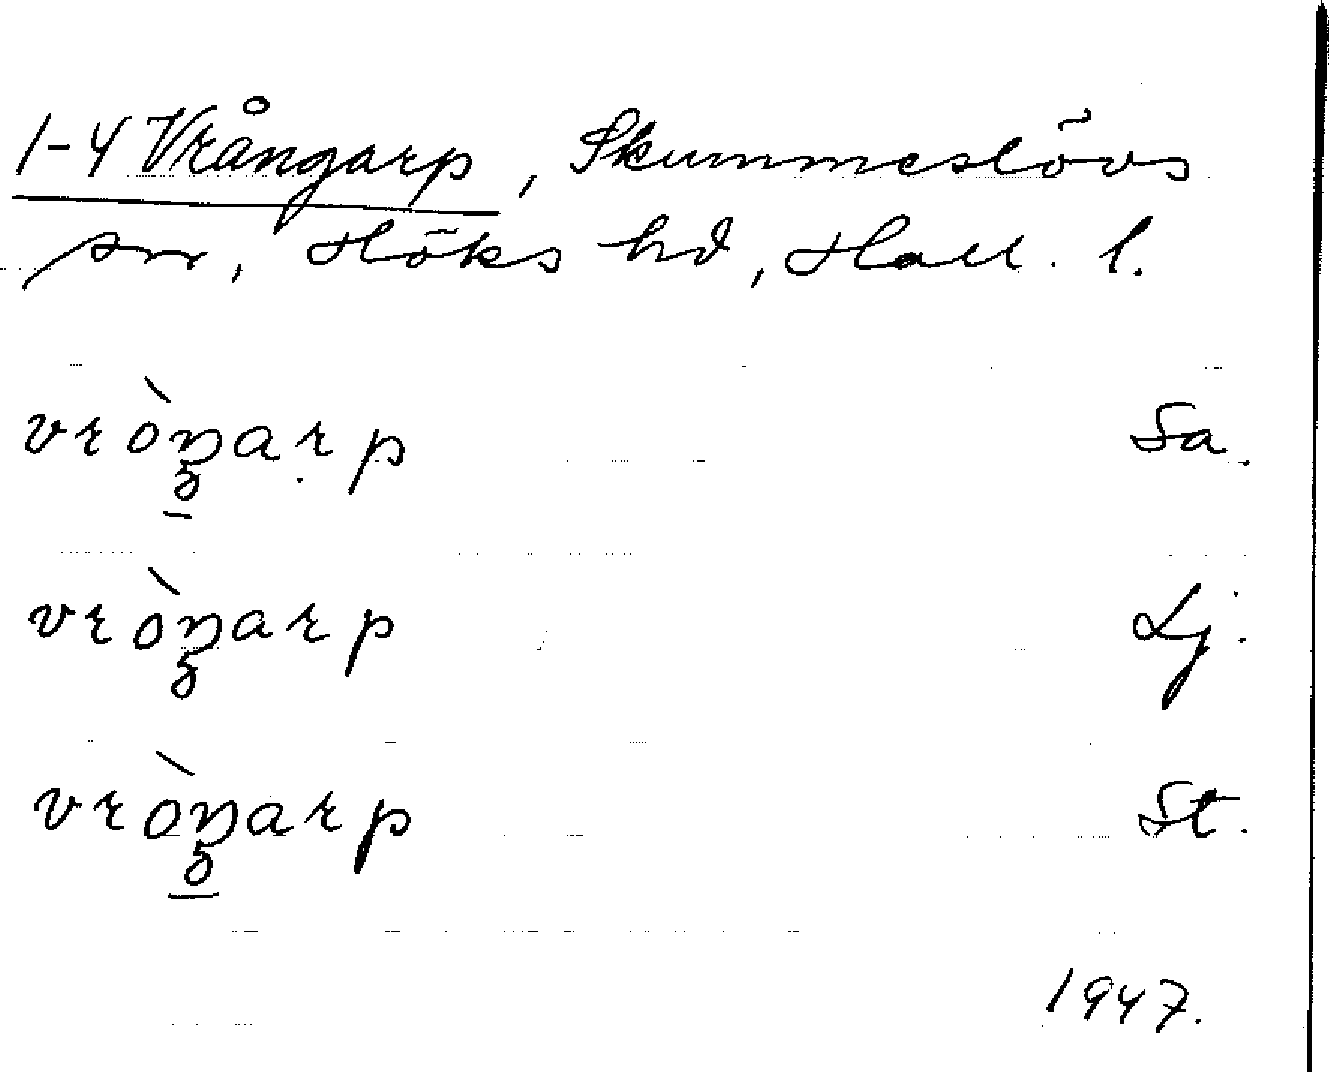 1-4 Vrångarp, Skummeslövs
sn, Höks hd, Hall. l.
vròŋarp Sa.
vròŋarp Lj.
vròŋarp St.
1947.